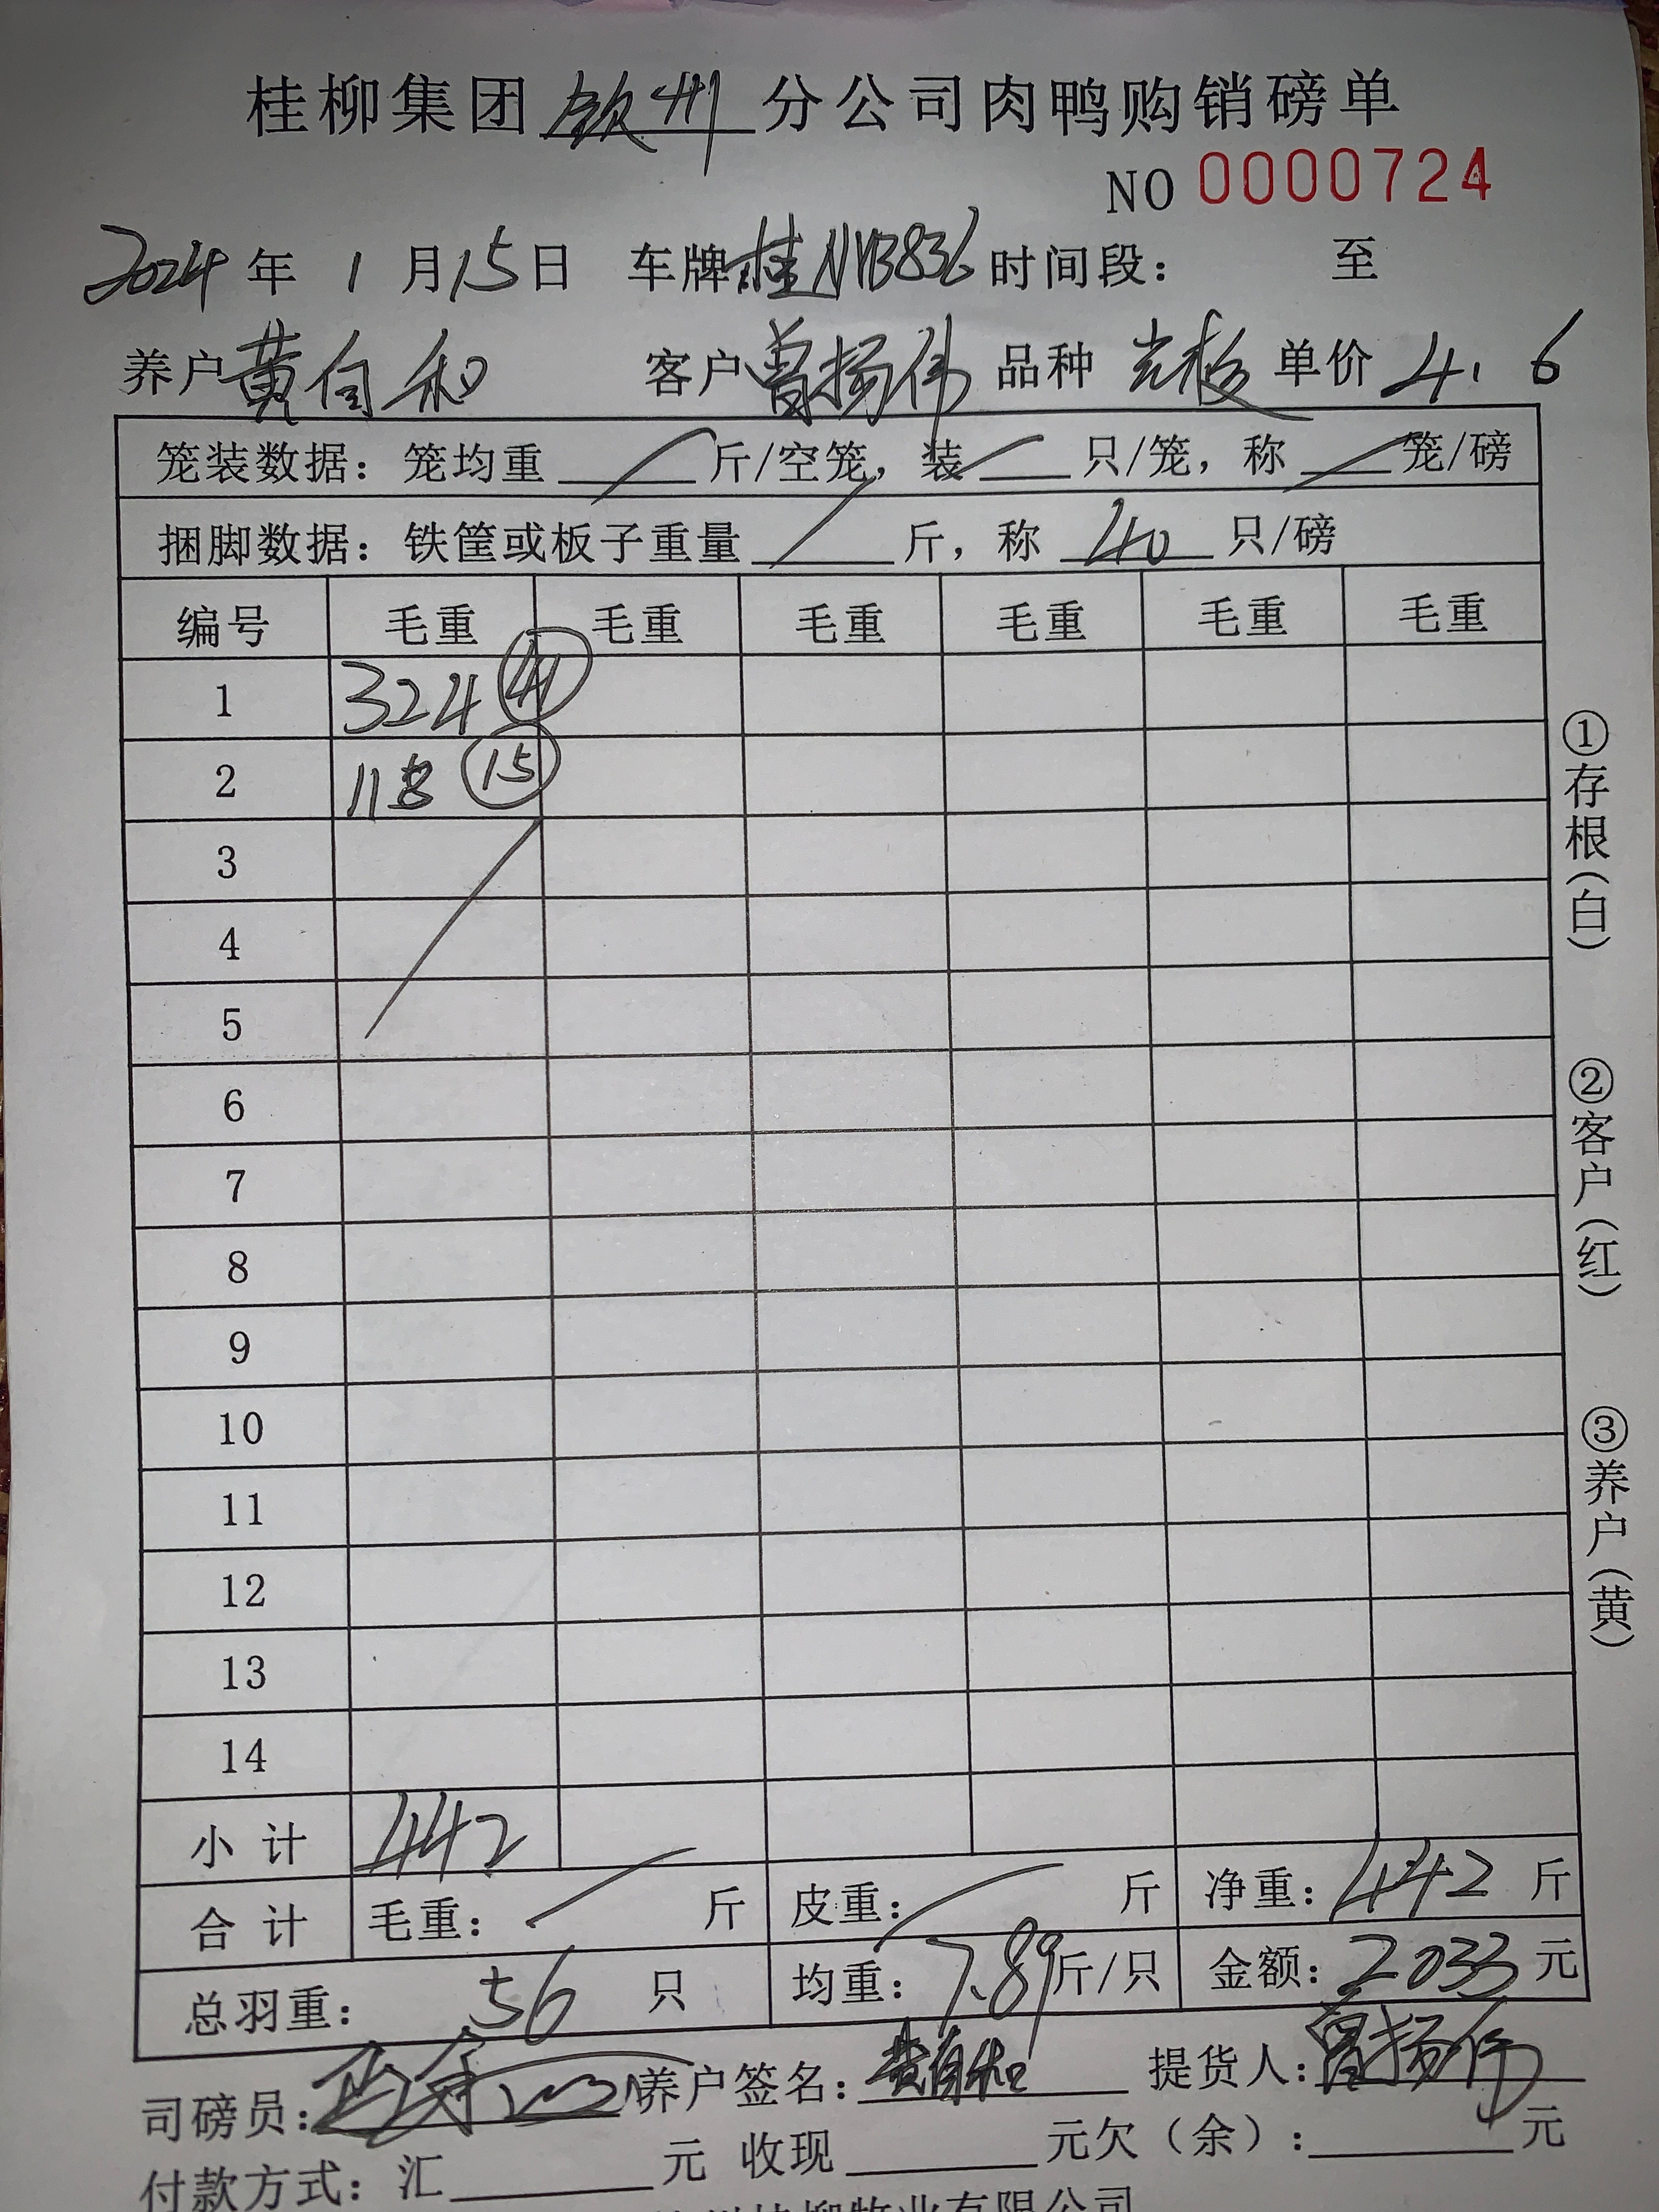 桂柳集团钦州分公司肉鸭购销磅单
NO 0000724
2024年1月15日 车牌桂NVB836时间段： 至
养户黄自和 客户曾扬伟 品种 单价4.6
笼装数据：笼均重 斤/空笼，装 只/笼，称 笼/磅
捆脚数据：铁筐或板子重量 斤，称 40 只/磅
编号 毛重 毛重 毛重 毛重 毛重 毛重
1 324 41
2 118 15
3
4
5
6
7
8
9
10
11
12
13
14
小计 442
合计 毛重： 斤 皮重： 斤 净重：442斤
总羽重：56只 均重：7.89斤/只 金额：2033元
司磅员： 养户签名：黄自和 提货人：曾扬伟
付款方式：汇 元 收现 元欠（余）： 元
柳牧业有限公司
①存根（白）
②客户（红）
③养户（黄）